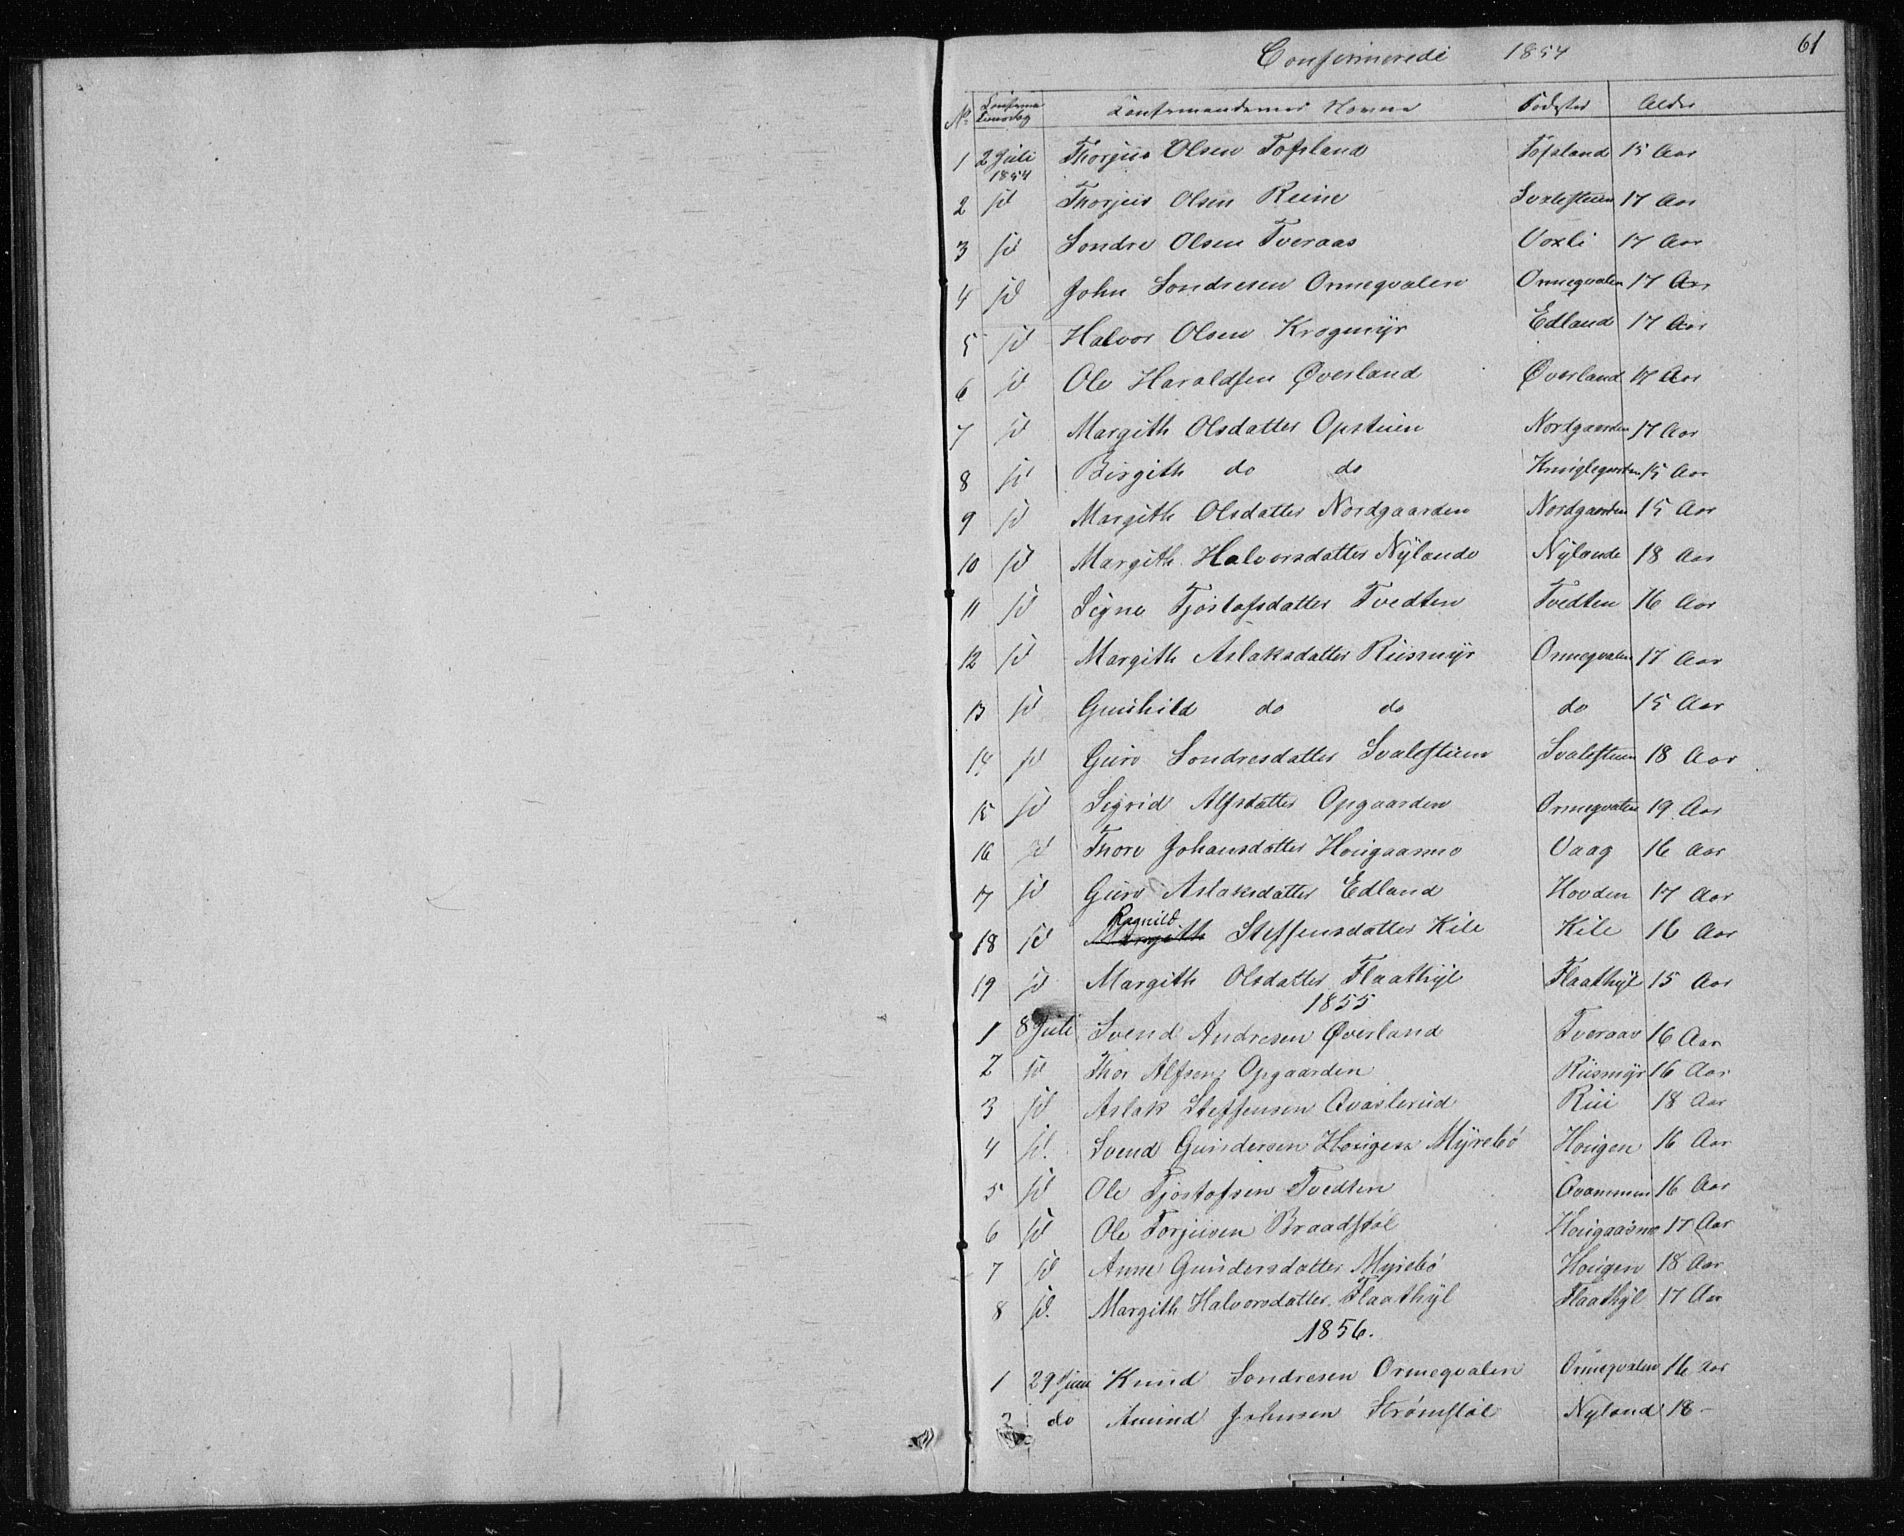 Confirmerede 1854 61
No Confirmationsdag Confirmandernes Navne Fødested Alder
1 2 Juli 1854 Thorjus Olsen Tofsland Tofsland 15 Aar
2 id Thorjus Olsen Svalestuen 17 Aar
3 id Sondre Olsen Tveraas Voxli 17 Aar
4 id John Sondresen Ormeqvalen Ormeqvalen 17 Aar
5 id Halvor Olsen Krogmyr Edland 17 Aar
6 id Ole Haraldsen Øverland Øverland 17 Aar
7 id Margith Olsdatter Opstuen Nordgaarden 17 Aar
8 id Birgith do do 15 Aar
9 id Margith Olsdatter Nordgaarden Nordgaarden 15 Aar
10 id Margith Halvorsdatter Nylande Nylande 18 Aar
11 id Signe Tjostofsdatter Tvedten Tvedten 16 Aar
12 id Margith Aslaksdatter Riismyr Ormeqvalen 17 Aar
13 id Gunhild do do do 15 Aar
14 id Guro Sondresdatter Svalestuen Svalestuen 18 Aar
15 id Sigrid Alfsdatter Opgaarden Ormeqvalen 19 Aar
16 id Thore Johansdatter Hougaasmo Vaag 16 Aar
17 id Guro Aslaksdatter Edland Hovden 17 Aar
Ragnild
18 id Margith Steffensdatter Kile Kile 16 Aar
19 id Margith Olsdatter Flaathyl Flaathyl 15 Aar
1855
1 8 Juli Svend Andresen Øverland Tveraas 16 Aar
2 id Thor Alfsen Opgaarden Riismyr 16 Aar
3 id Aslak Steffensen Qvaslerud Rui 18 Aar
4 id. Svend Gundersen Hougen Myrebø Hougen 16 Aar
5 id Ole Tjostofsen Tvedten Qvammen 16 Aar
6 id Ole Torjusen Braadstøl Hougaasmo 17 Aar
7 id Anne Gundersdatter Myrebø Hougen 18 Aar
8 id. Margith Halvorsdatter Flaathyl Flaathyl 17 Aar
1856.
1 29 Juni Knud Sondresen Ormeqvalen Ormeqvalen 16 Aar
2 do Amund Johnsen Strømstøl Nyland 18 -